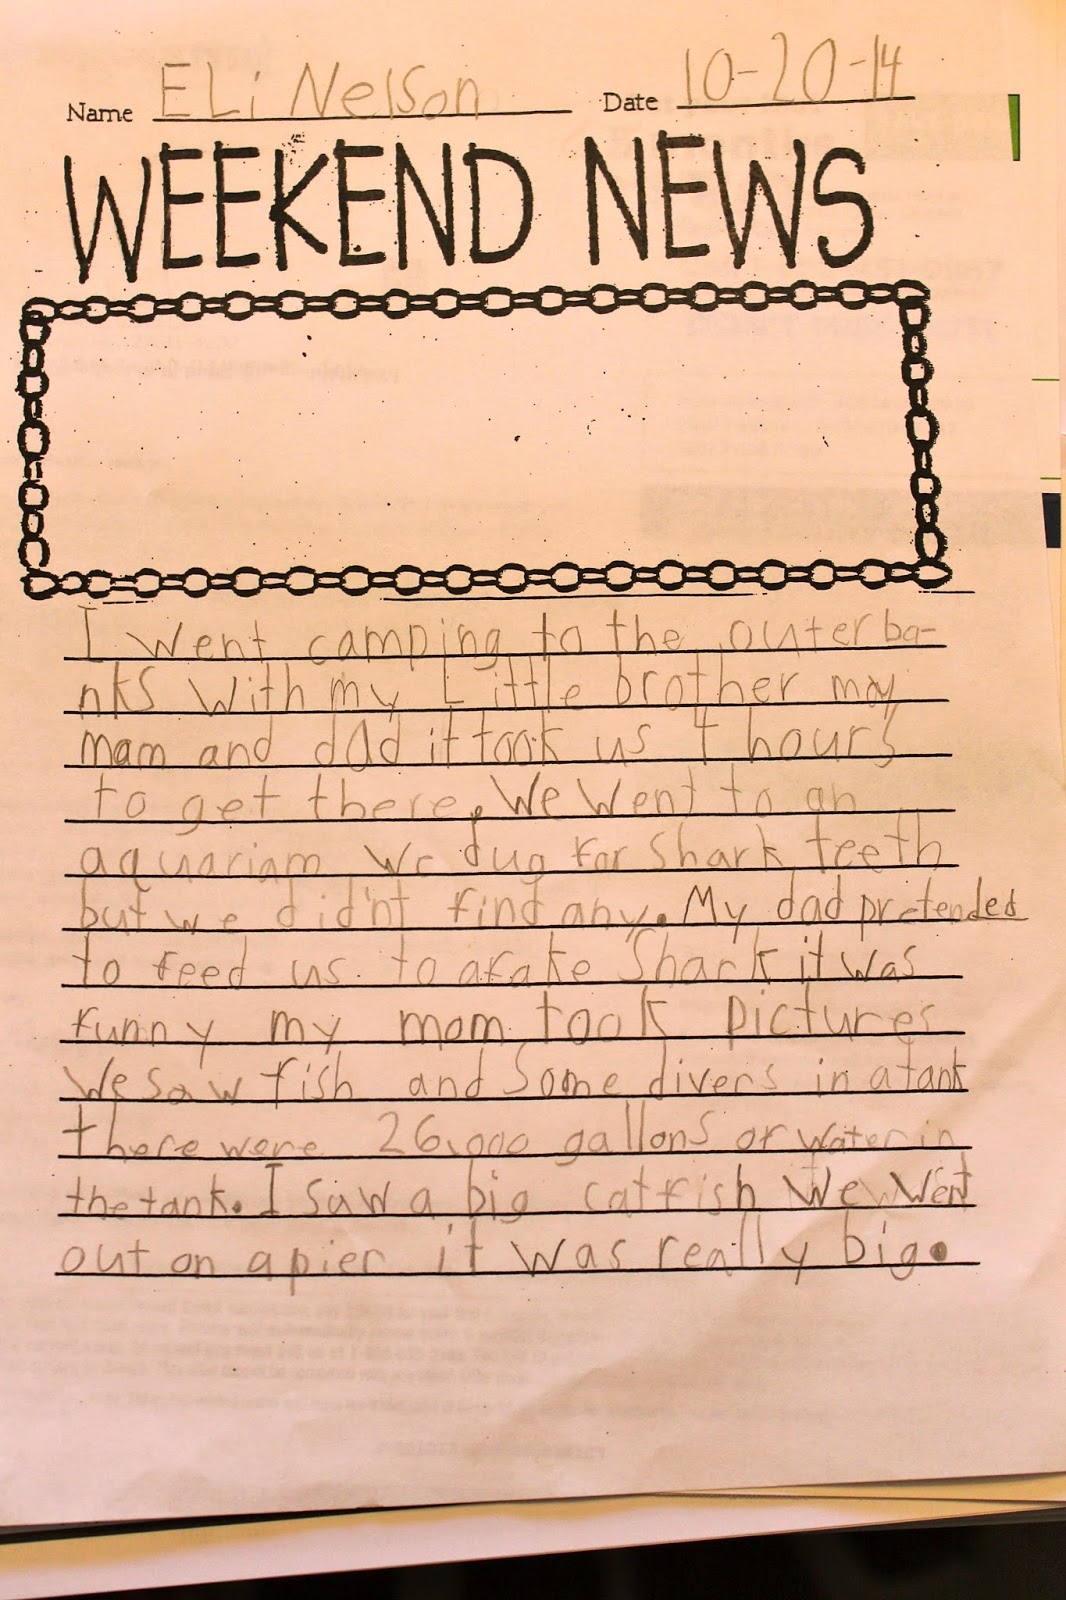 Name ELi Nelson Date 10-20-14
WEEKEND NEWS
I went camping to the outerba-
nks with my Little brother my
mam and dad it took us 4 hours
to get there. We went to an
aquariam We dug for shark teeth
but we did'nt find any. My dad pretended
to feed us to a fake Shark it was
funny my mom took pictures
We saw fish and Some divers in a tank
there were 26,000 gallons of water in
the tank. I saw a big catfish We went
out on a pier it was really big.